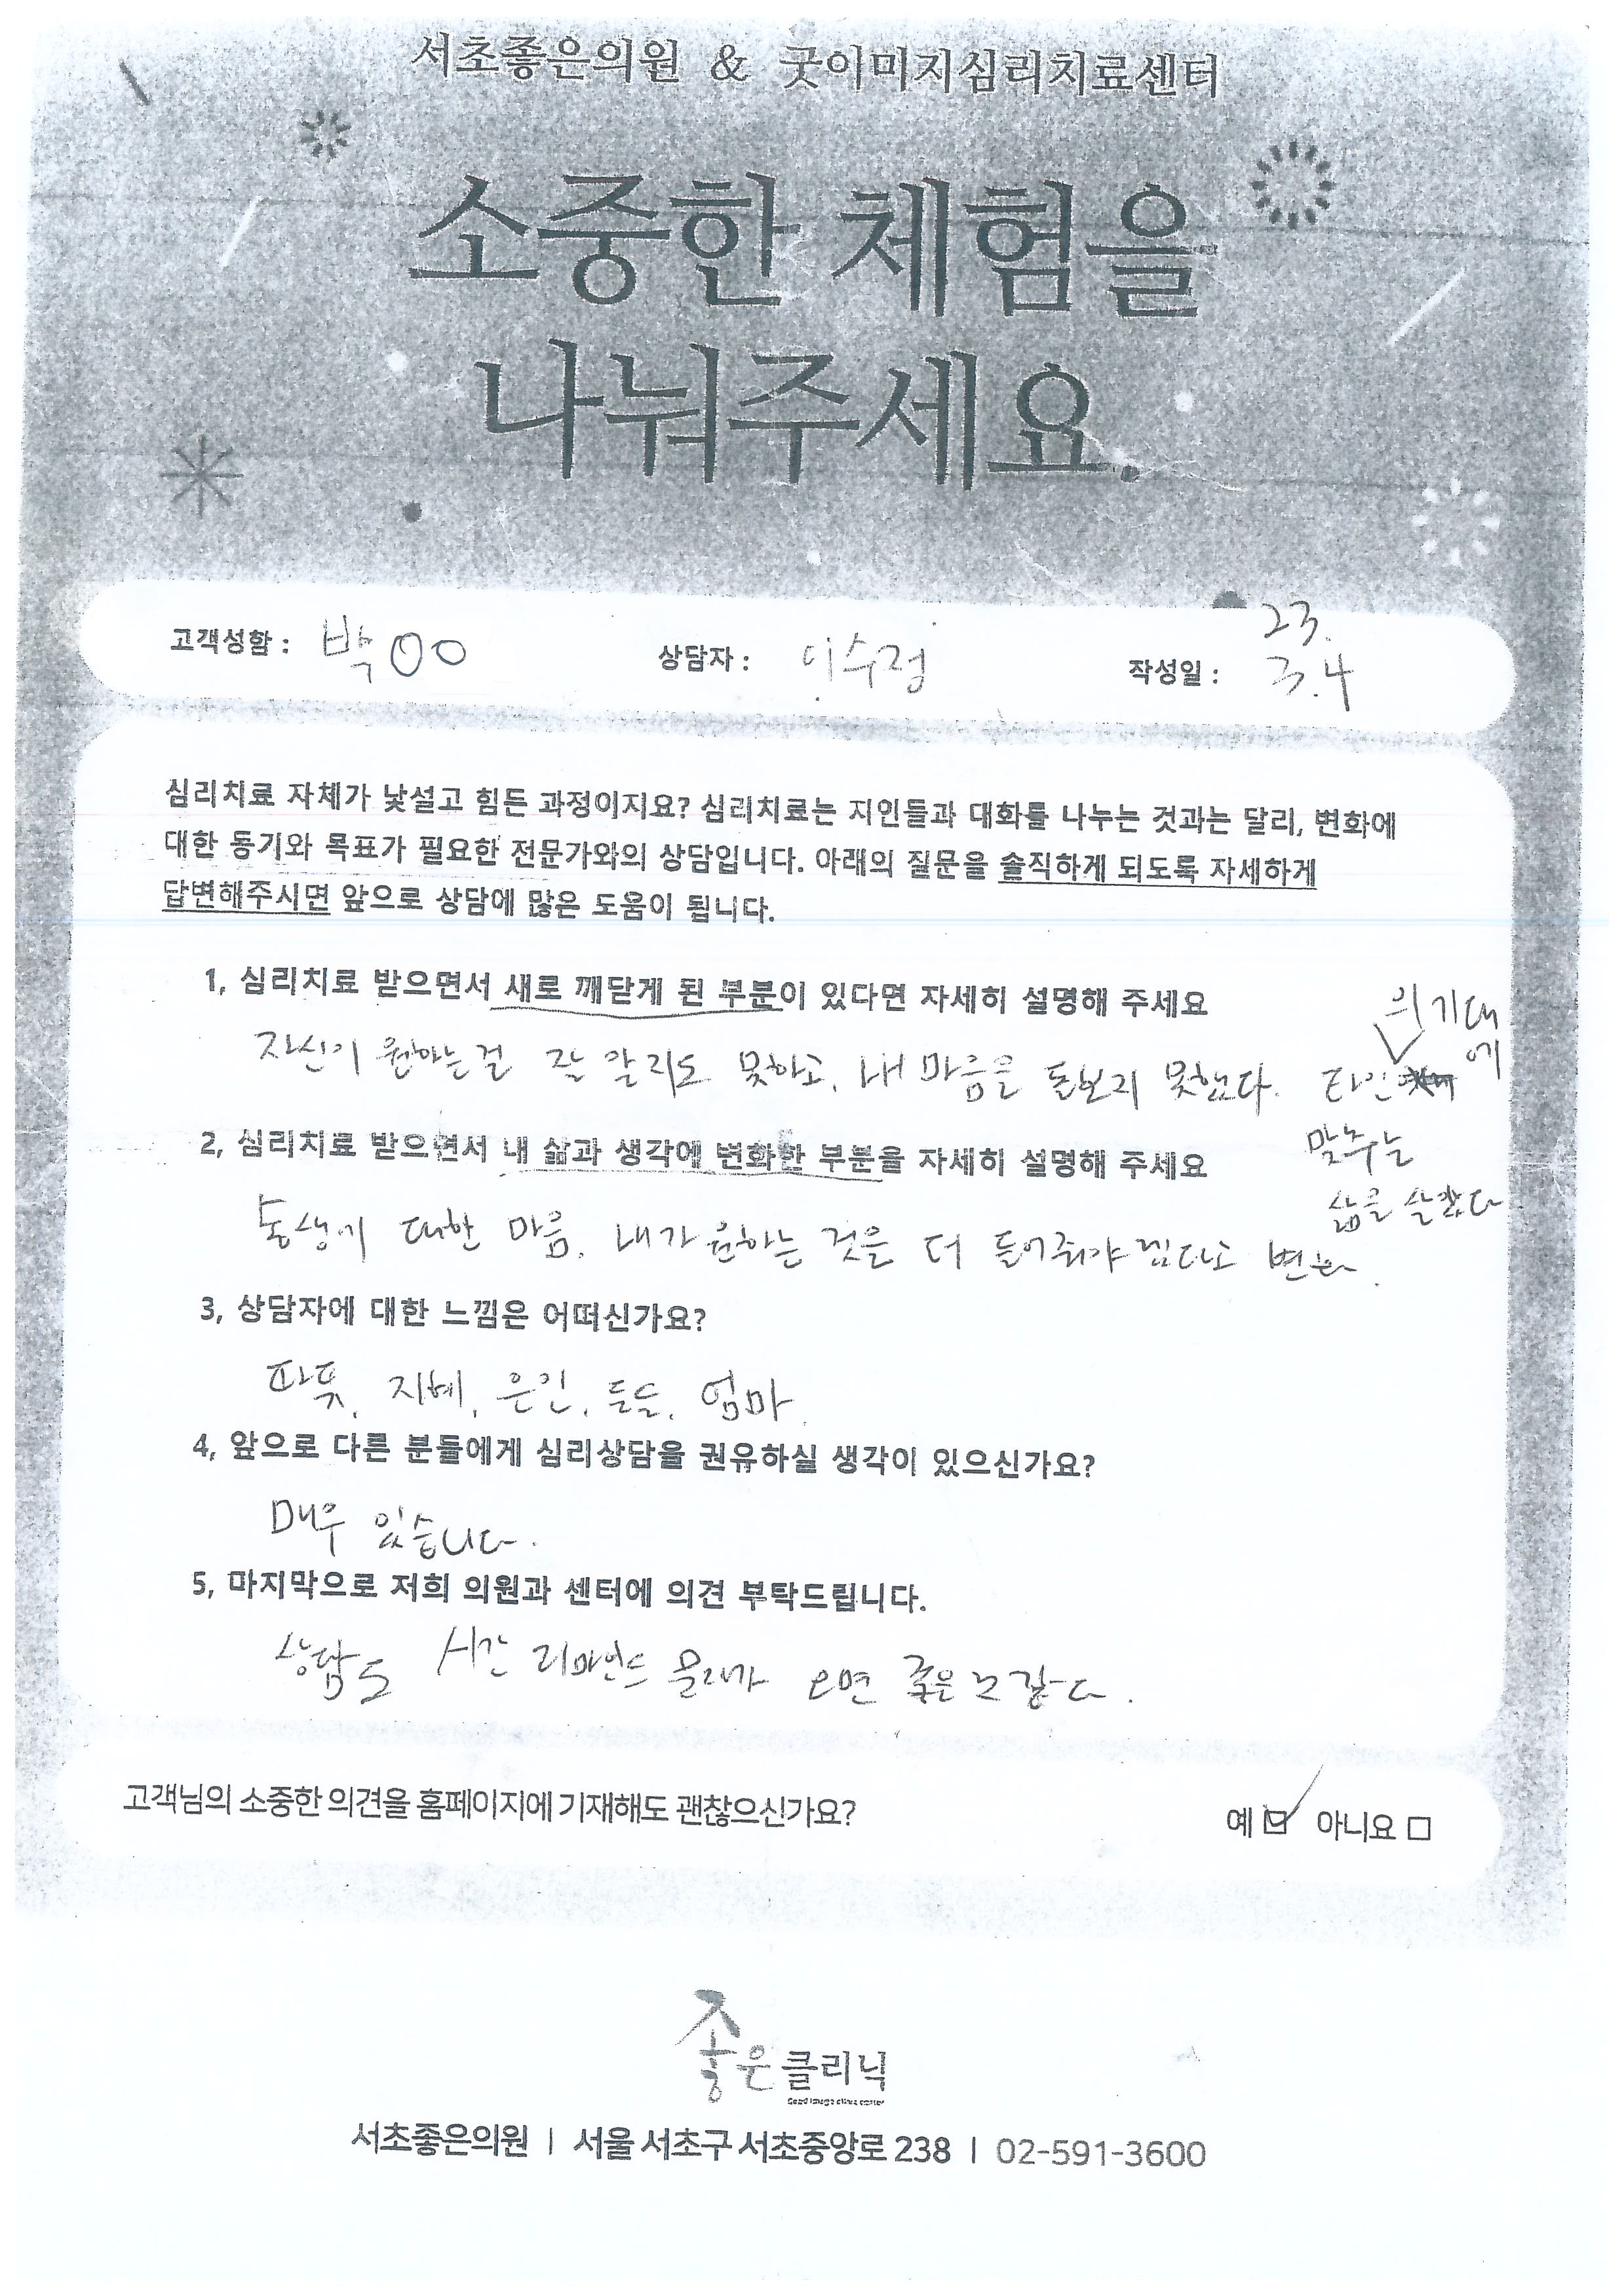 서초좋은의원 & 굿이미지심리치료센터
소중한 체험을
나눠주세요.
고객성함 : 박OO 상담자 : 이수정 작성일 : 23. 3.4
심리치료 자체가 낯설고 힘든 과정이지요? 심리치료는 지인들과 대화를 나누는 것과는 달리, 변화에
대한 동기와 목표가 필요한 전문가와의 상담입니다. 아래의 질문을 솔직하게 되도록 자세하게
답변해주시면 앞으로 상담에 많은 도움이 됩니다.
1, 심리치료 받으면서 새로 깨닫게 된 부분이 있다면 자세히 설명해 주세요
자신이 원하는걸 잘 알지도 못하고, 내 마음을 돌보지 못했다. 타인의 기대에
맞추는
삶을 살았다
2, 심리치료 받으면서 내 삶과 생각에 변화한 부분을 자세히 설명해 주세요
동생에 대한 마음, 내가 원하는 것을 더 들어줘야겠다고 변화.
3, 상담자에 대한 느낌은 어떠신가요?
따뜻, 지혜, 은인, 든든, 엄마.
4, 앞으로 다른 분들에게 심리상담을 권유하실 생각이 있으신가요?
매우 있습니다.
5, 마지막으로 저희 의원과 센터에 의견 부탁드립니다.
상담도 시간 리마인드 문자가 오면 좋은 것 같다.
고객님의 소중한 의견을 홈페이지에 기재해도 괜찮으신가요? 예 ☑ 아니요 □
좋은클리닉
서초좋은의원 | 서울 서초구 서초중앙로 238 | 02-591-3600